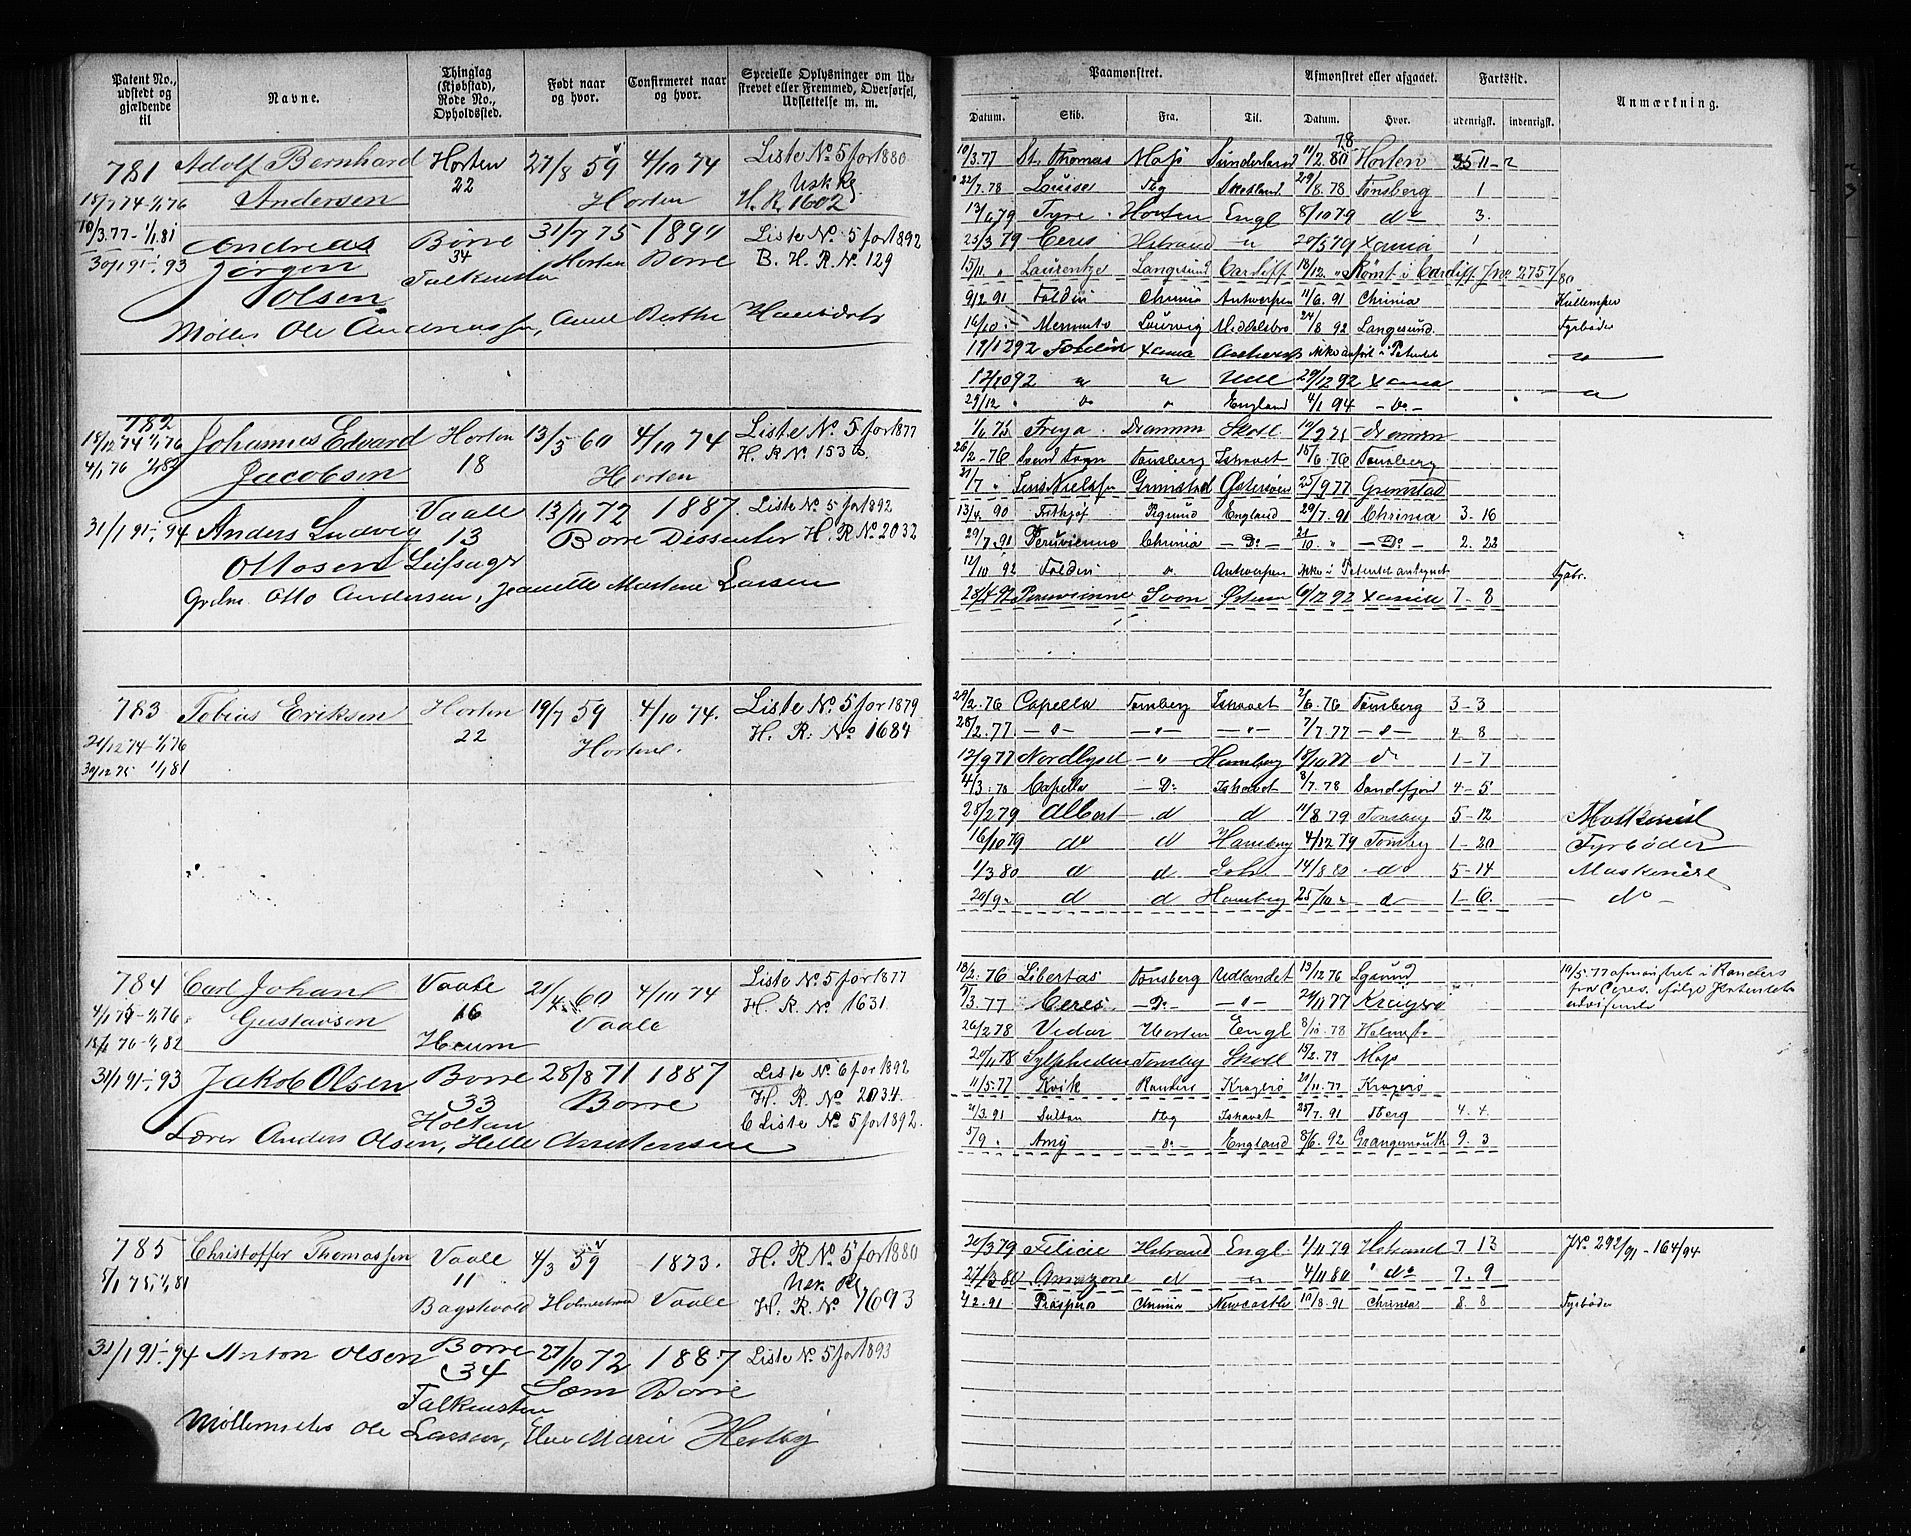 Patent No., udstedt og gjældende til
Navne.
Thinglag (Kjøbstad), Rode No., Opholdssted.
Født naar og hvor.
Confirmeret naar og hvor.
Specielle Oplysninger om Udskrevet eller Fremmed, Overførsel, Udslettelse m. m.
781 Adolf Bernhard Horten 27/8 59 4/10 74 Liste No 5 for 1880
22
15/7 74 - 1/1 76 Andersen Horten H. R. 1602
10/3.77 - 1/1.81
Andreas Børre 31/7 75 1890 Liste No 5 for 1892
30/1 91 - 93 Jørgen 34 Horten Borre B. H. R. No 129
Olsen Falkensten
Møller Ole Andreassen, Anne Berthe
782
18/12 74 1/1 76 Johannes Edvard Horten 13/5 60 4/10 74 Liste No 5 for 1877
4/1 76 1/1 82 Jacobsen 18 Horten H. R No 153
Vaale 13/11 72 1887. Liste No 5 for 1892
31/1 91 - 94 Anders Ludvig 13 Borre Dissenter H. R No 2032
Ottosen
Otto Andersen, Jeanette Martine Larsen
783 Tobias Eriksen Horten 19/7 59 4/10 74. Liste No 5 for 1879
21/12 74 - 1/1 76 22 Horten. H. R. No 1684
30/12 75 1/1 81
784 Carl Johan Vaale 21/4 60 4/10 74 Liste No 5 for 1877
4/1 75 - 1/1 76 Gustavsen 16 Vaale H. R. No 1631.
15/1 76 - 1/1 82 Heum
31/1 91 - 93 Jakob Olsen Borre 28/8 71 1887 Liste No 6 for 1892
33 Borre H. R. No 2034.
Holtan C Liste No 5 for 1892.
Lærer Anders Olsen, Helle Christensen
785 Christoffer Thomassen Vaale 4/3 59 1873. H. R No 5 for 1880
5/1 75 1/1 81 11
Bagstevold Holmestrand Vaale H. R. No 1693
31/1 91 - 94 Anton Olsen Borre 27/10 72 1887 Liste No 5 for 1893
34 Sem Borre
Falkensten
Møllemester Ole Larsen, Else Marie
Paamønstret.
Afmønstret eller afgaaet.
Fartstid.
Anmærkning.
Datum. Skib. Fra. Til. Datum. Hvor. udenrigsk. indenrigsk.
10/3.77 St. Thomas Moss Sunderland 11/2.80 Horten
22/7.78 Louise Tbg Skotland 29/8.78 Tønsberg 1
13/6 79 Tyre Horten Engl 8/10 79 do 3.
25/3 79 Ceres Hstrand " 20/5 79 Xania 1
15/11 " Laurentze Langesund Cardiff 13/12 " Rømt i Cardiff Jno 2757/80
9/2 91 Foldin Chrinia Antwerpen 11/6.91 Chrinia Kullemper
16/10 - Memento Laurvig Middelsbro 24/8 92 Langesund. Fyrbøder
19/12 92 Foldin Xania
12/10 92 " " Hull 29/12 92 Xania
29/12 " Do " England 4/1 94 - Do -
1/6 75 Freya Drammen Skotl. Drammen
26/2-76 Svend Foyn Tønsberg Ishavet 15/6.76 Tønsberg
21/7 " Jens Nielsen Grimstad Østersøen 25/9 77 Grimstad
13/4 90 Fritjof Pgrund England 29/7.91 Chrinia 3-16
29/7.91 Peruvienne Chrinia - Do - 21/10. " - Do - 2.22
12/10 92 Foldin Do Antwerpen Fyrbr.
28/4 92 Peruvienne Svon 6/12 92 Xania 7-8
29/2.76 Capella Tønsberg Ishavet 2/6.76 Tønsberg 3-3
28/2.77 -"- -"- -"- 7/7.77 -"- 4 8
12/9 77 Nordlyset -"- Hamburg 19/10 77 do 1-7
4/3.78 Capella - Do Ishavet 8/7.78 Sandefjord 4-5
28/2 79 Albert d d 11/8 79 Tønsberg 5-12 Maskinist
16/10 79 do d Hamburg 4/12 79 Tønsbg 1-20 Fyrbøder
1/3 80 d d 14/8 80 do 5-14 Maskinist
20/9 " d d Hamburg 25/10 " d 1-6. do
18/2.76 Libertas Tønsberg Udlandet 19/12 76 10/5.77 afmønstret i Randers
5/3.77 Ceres - Do - -"- 24/11 77 Kragerø fra Ceres, ifølge
26/2 78 Vidar Horten Engl 8/10.78
20/11 78 Sylpheden Tønsbg Skotl 15/2.79 Moss
11/5.77 Kvik Randers Kragerø 24/11.77 Kragerø
2/3.91 Sultan Tbg Ishavet 25/7.91 Tberg 4.4.
5/9 " Amy - Do England 8/6.92 Grangemouth 9.3
20/3 79 Felicie Hstrand Engl. 1/11 79 Hstrand 7 13 JNo 292/91 - 164/94
27/3 80 Amazone d " 4/11 80 " do 7.9
4/2.91 Prospero Chrinia Newcastle 19/8.91 Chrinia 8.8 Fyrbøder